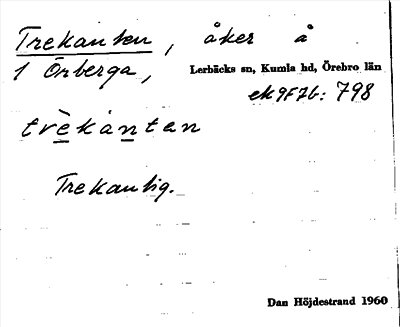 Trekanten, åker å
1 Örberga,
Lerbäcks sn, Kumla hd, Örebro län
ek 9F7b: 798
trèkànten
Trekantig.
Dan Höjdestrand 1960